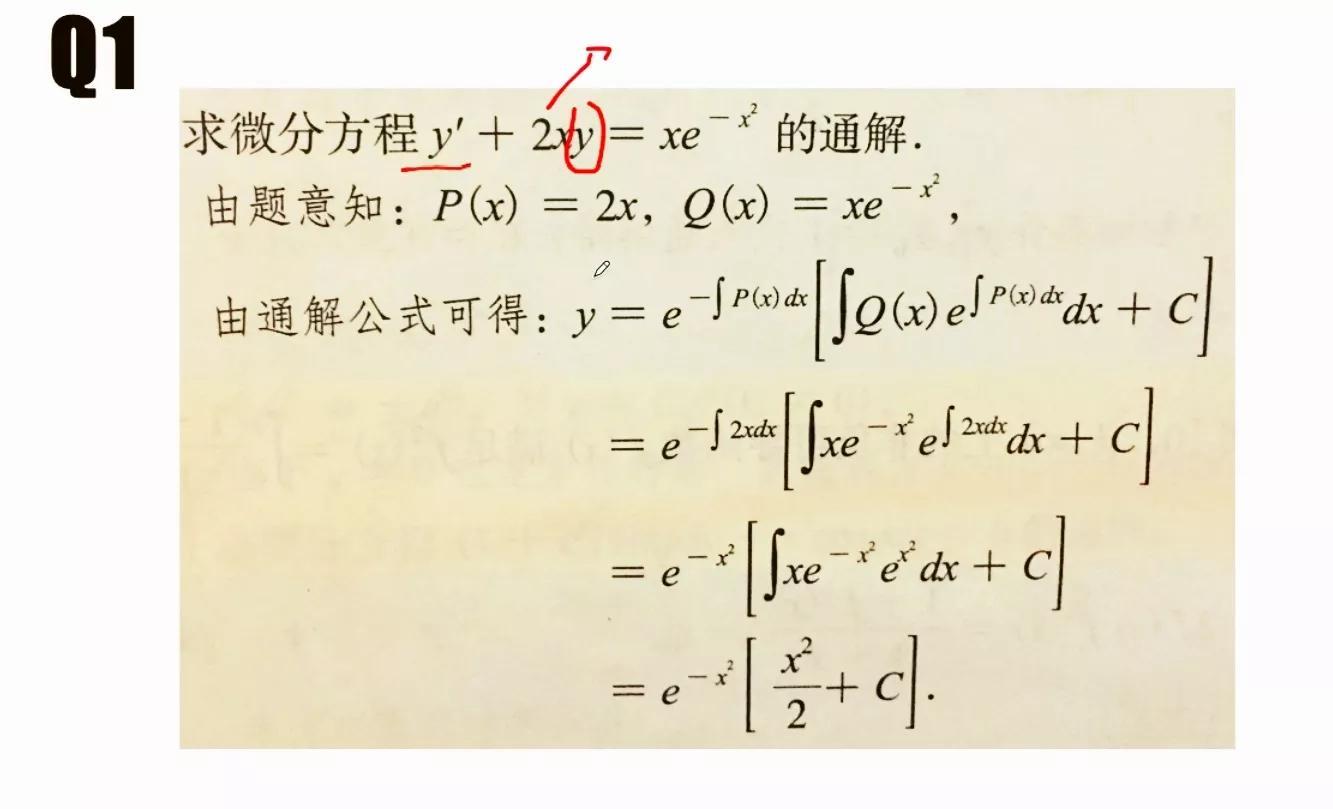 Q1
求微分方程 y′ + 2xy = xe^{-x²} 的通解.
由题意知: P(x) = 2x, Q(x) = xe^{-x²},
由通解公式可得: y = e^{-∫P(x)dx}[∫Q(x)e^{∫P(x)dx}dx + C]
= e^{-∫2xdx}[∫xe^{-x²}e^{∫2xdx}dx + C]
= e^{-x²}[∫xe^{-x²}e^{x²}dx + C]
= e^{-x²}[x²/2 + C].